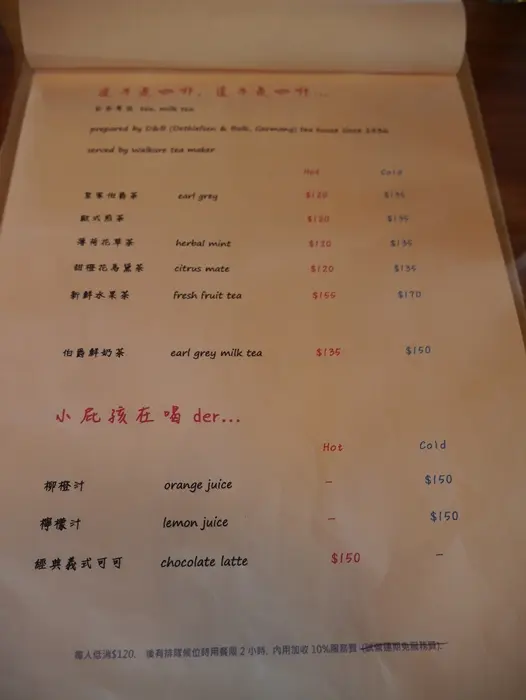 還不是咖啡, 還不是咖啡...
tea, milk tea
prepared by D&B (Dethlefsen & Balk, Germany) tea house since 1936
served by Walkure tea maker
Hot Cold
皇家伯爵茶 earl grey $120 $135
歐式煎茶 $120 $135
薄荷花草茶 herbal mint $120 $135
甜橙花馬黛茶 citrus mate $120 $135
新鮮水果茶 fresh fruit tea $155 $170
伯爵鮮奶茶 earl grey milk tea $135 $150
小屁孩在喝 der...
Hot Cold
柳橙汁 orange juice – $150
檸檬汁 lemon juice – $150
經典義式可可 chocolate latte $150 –
每人低消$120. 後有排隊候位時用餐限 2 小時, 內用加收 10%服務費 (試營運期免服務費).